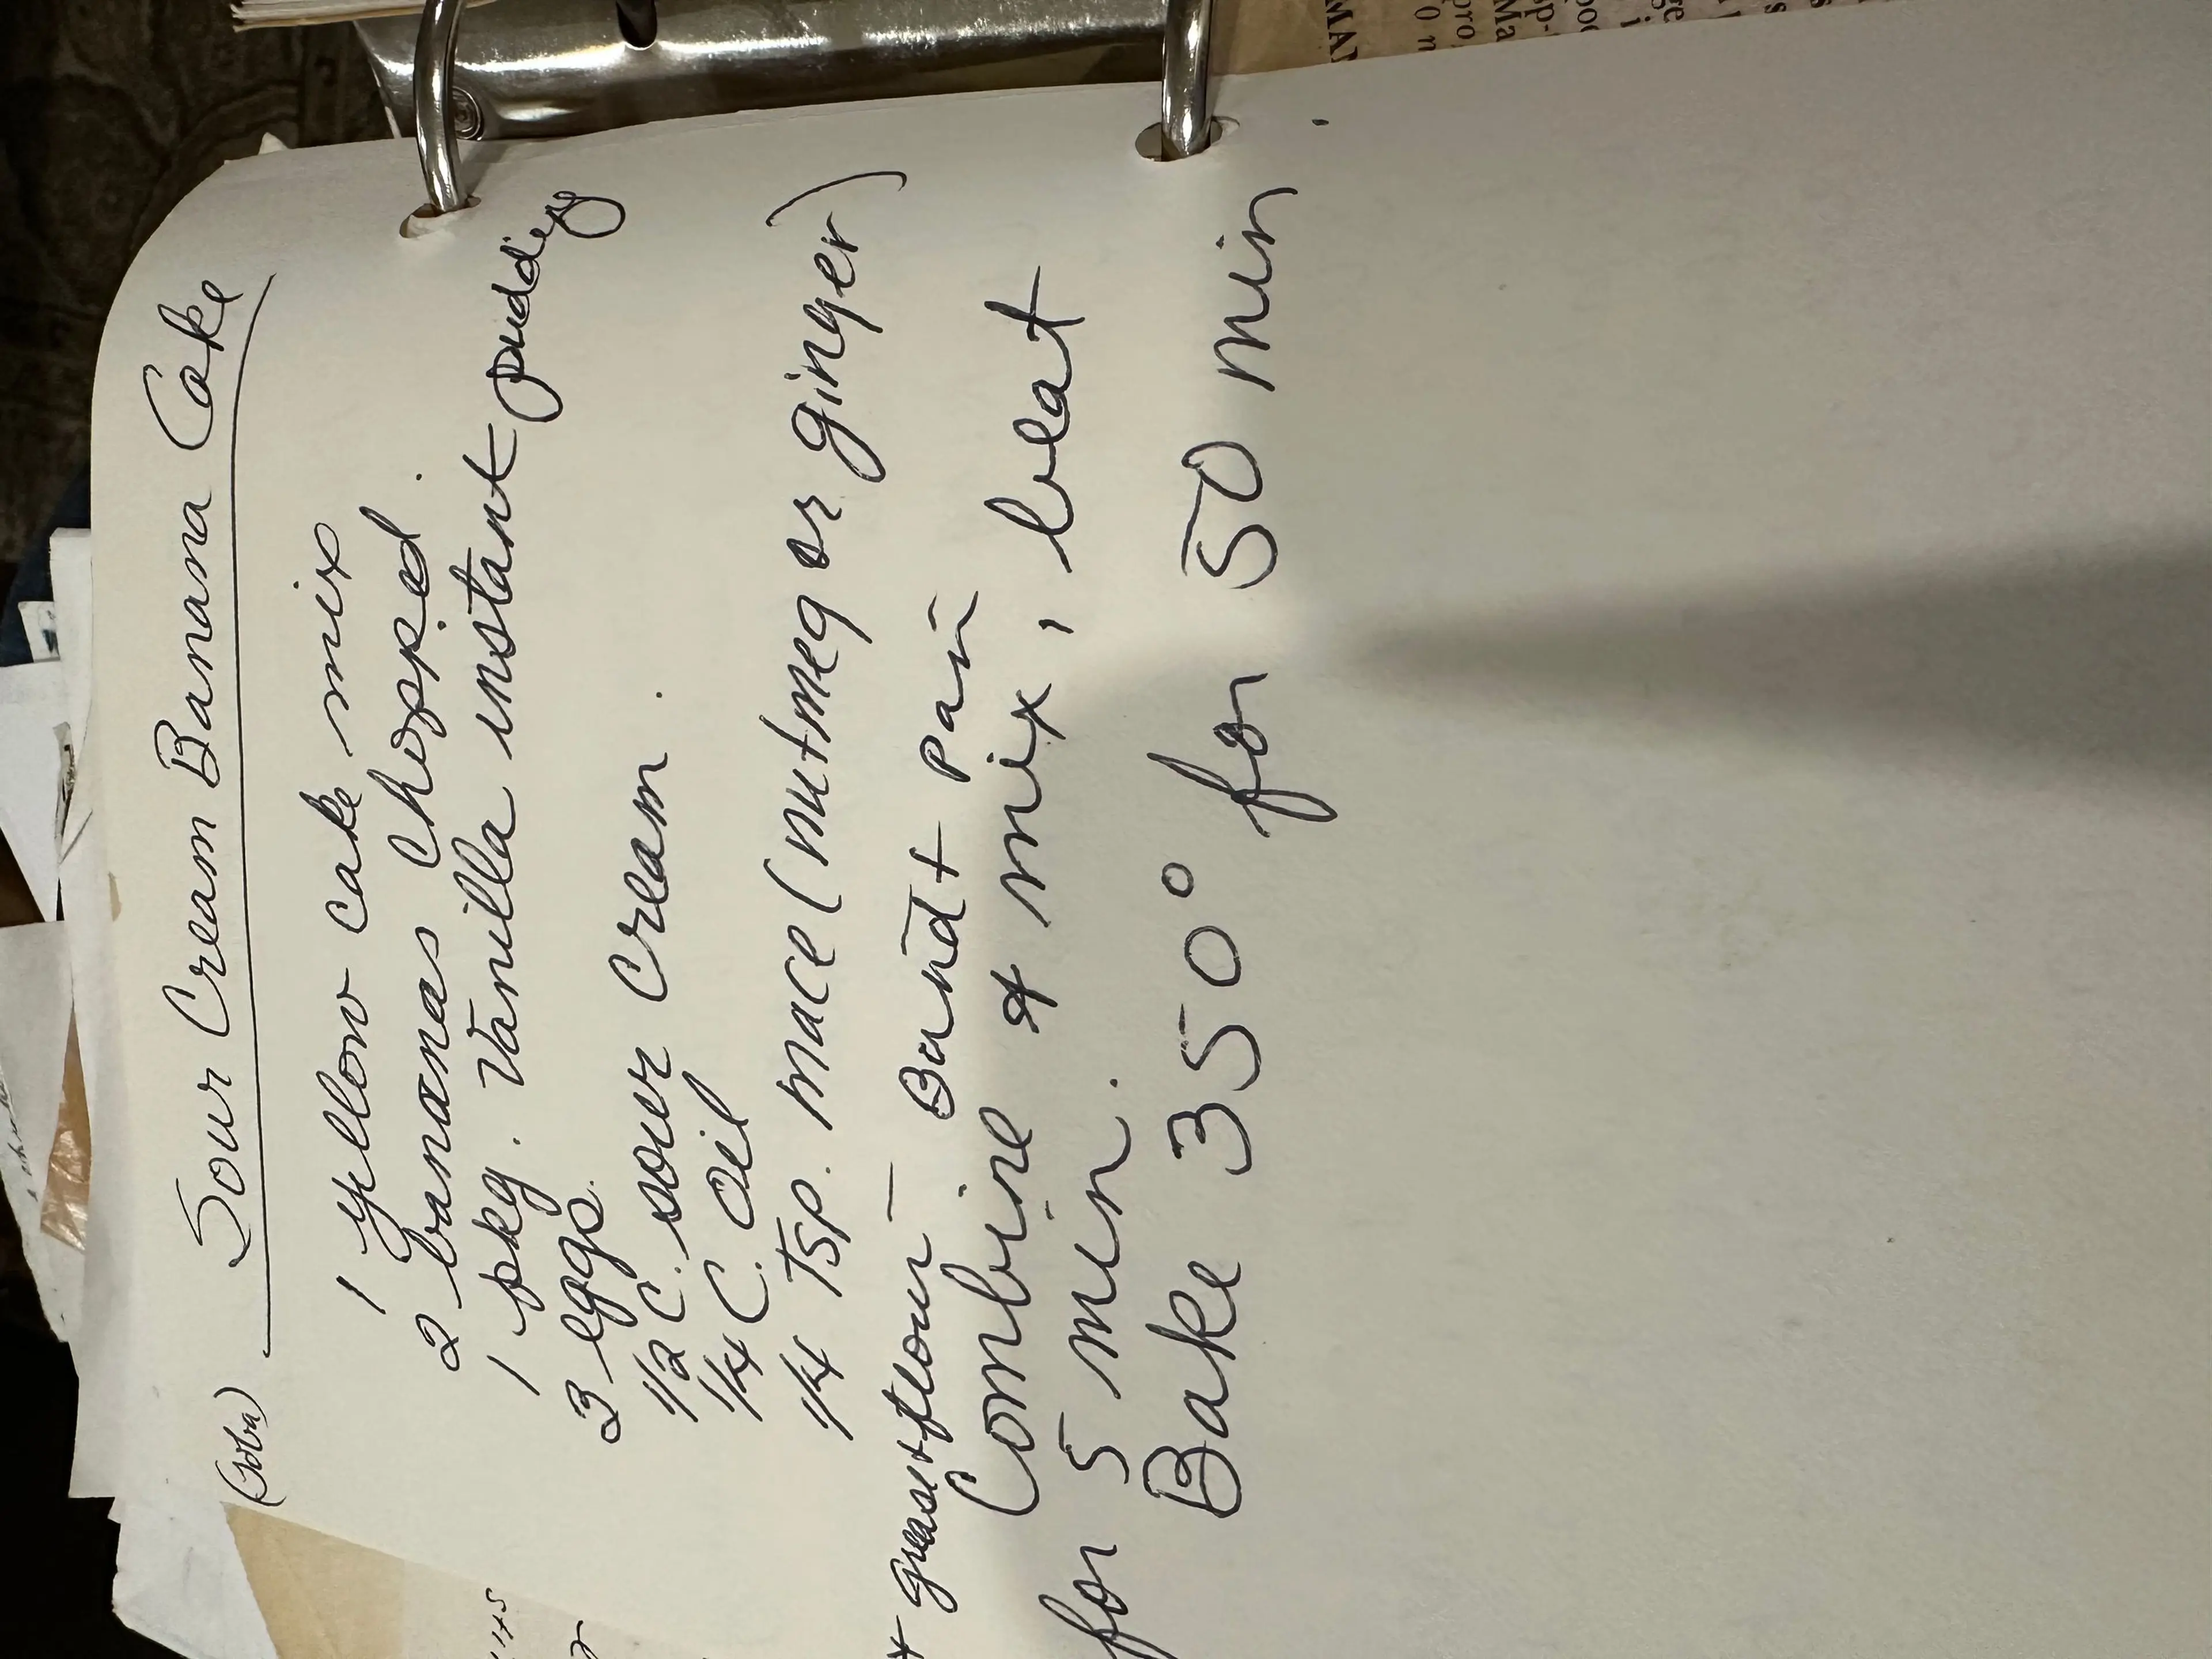 Sour Cream Banana Cake
1 yellow cake mix
2 bananas chopped.
1 pkg. Vanilla instant pudding
3 eggs.
1/2 c. sour cream.
1/4 C. oil
1/4 Tsp. mace (nutmeg or ginger)
* grease + flour - Bundt pan -
Combine & mix, beat
for 5 min.
Bake 350° for 50 min.